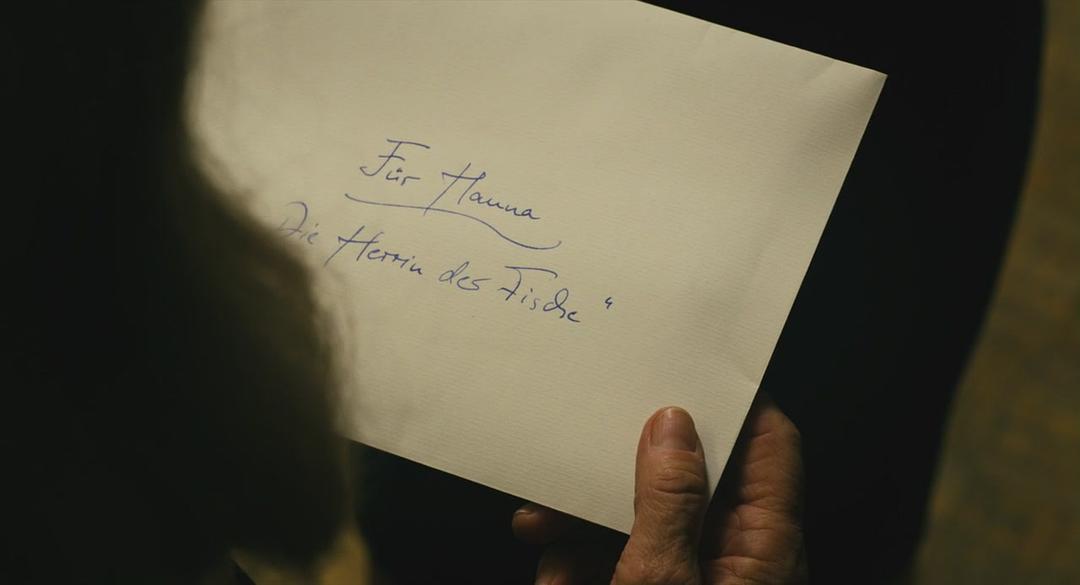 Für Hanna
Die Herrin der Fische"